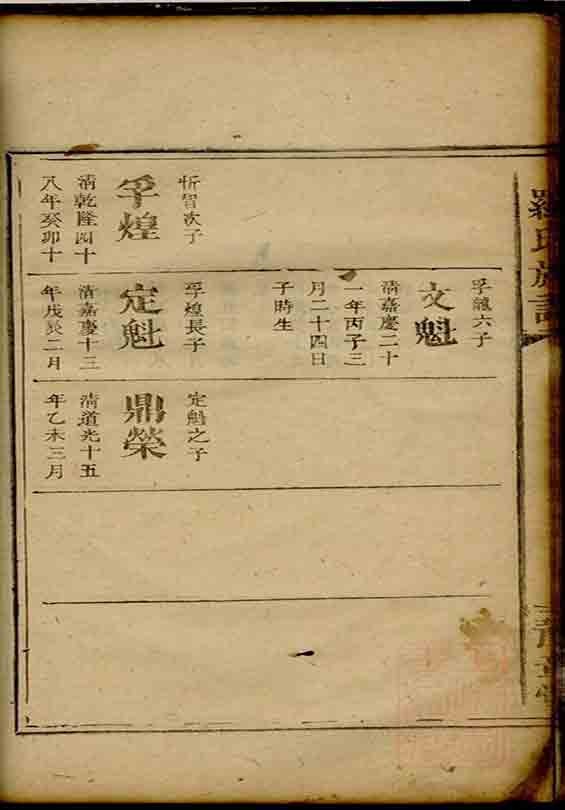 羅氏族譜
孚煌
次子
清乾隆四十
八年癸卯十
孚龍六子
文魁
清嘉慶二十
一年丙子三
月二十四日
子時生
孚煌長子
定魁
清嘉慶十三
年戊辰二月
定魁之子
鼎榮
清道光十五
年乙未三月